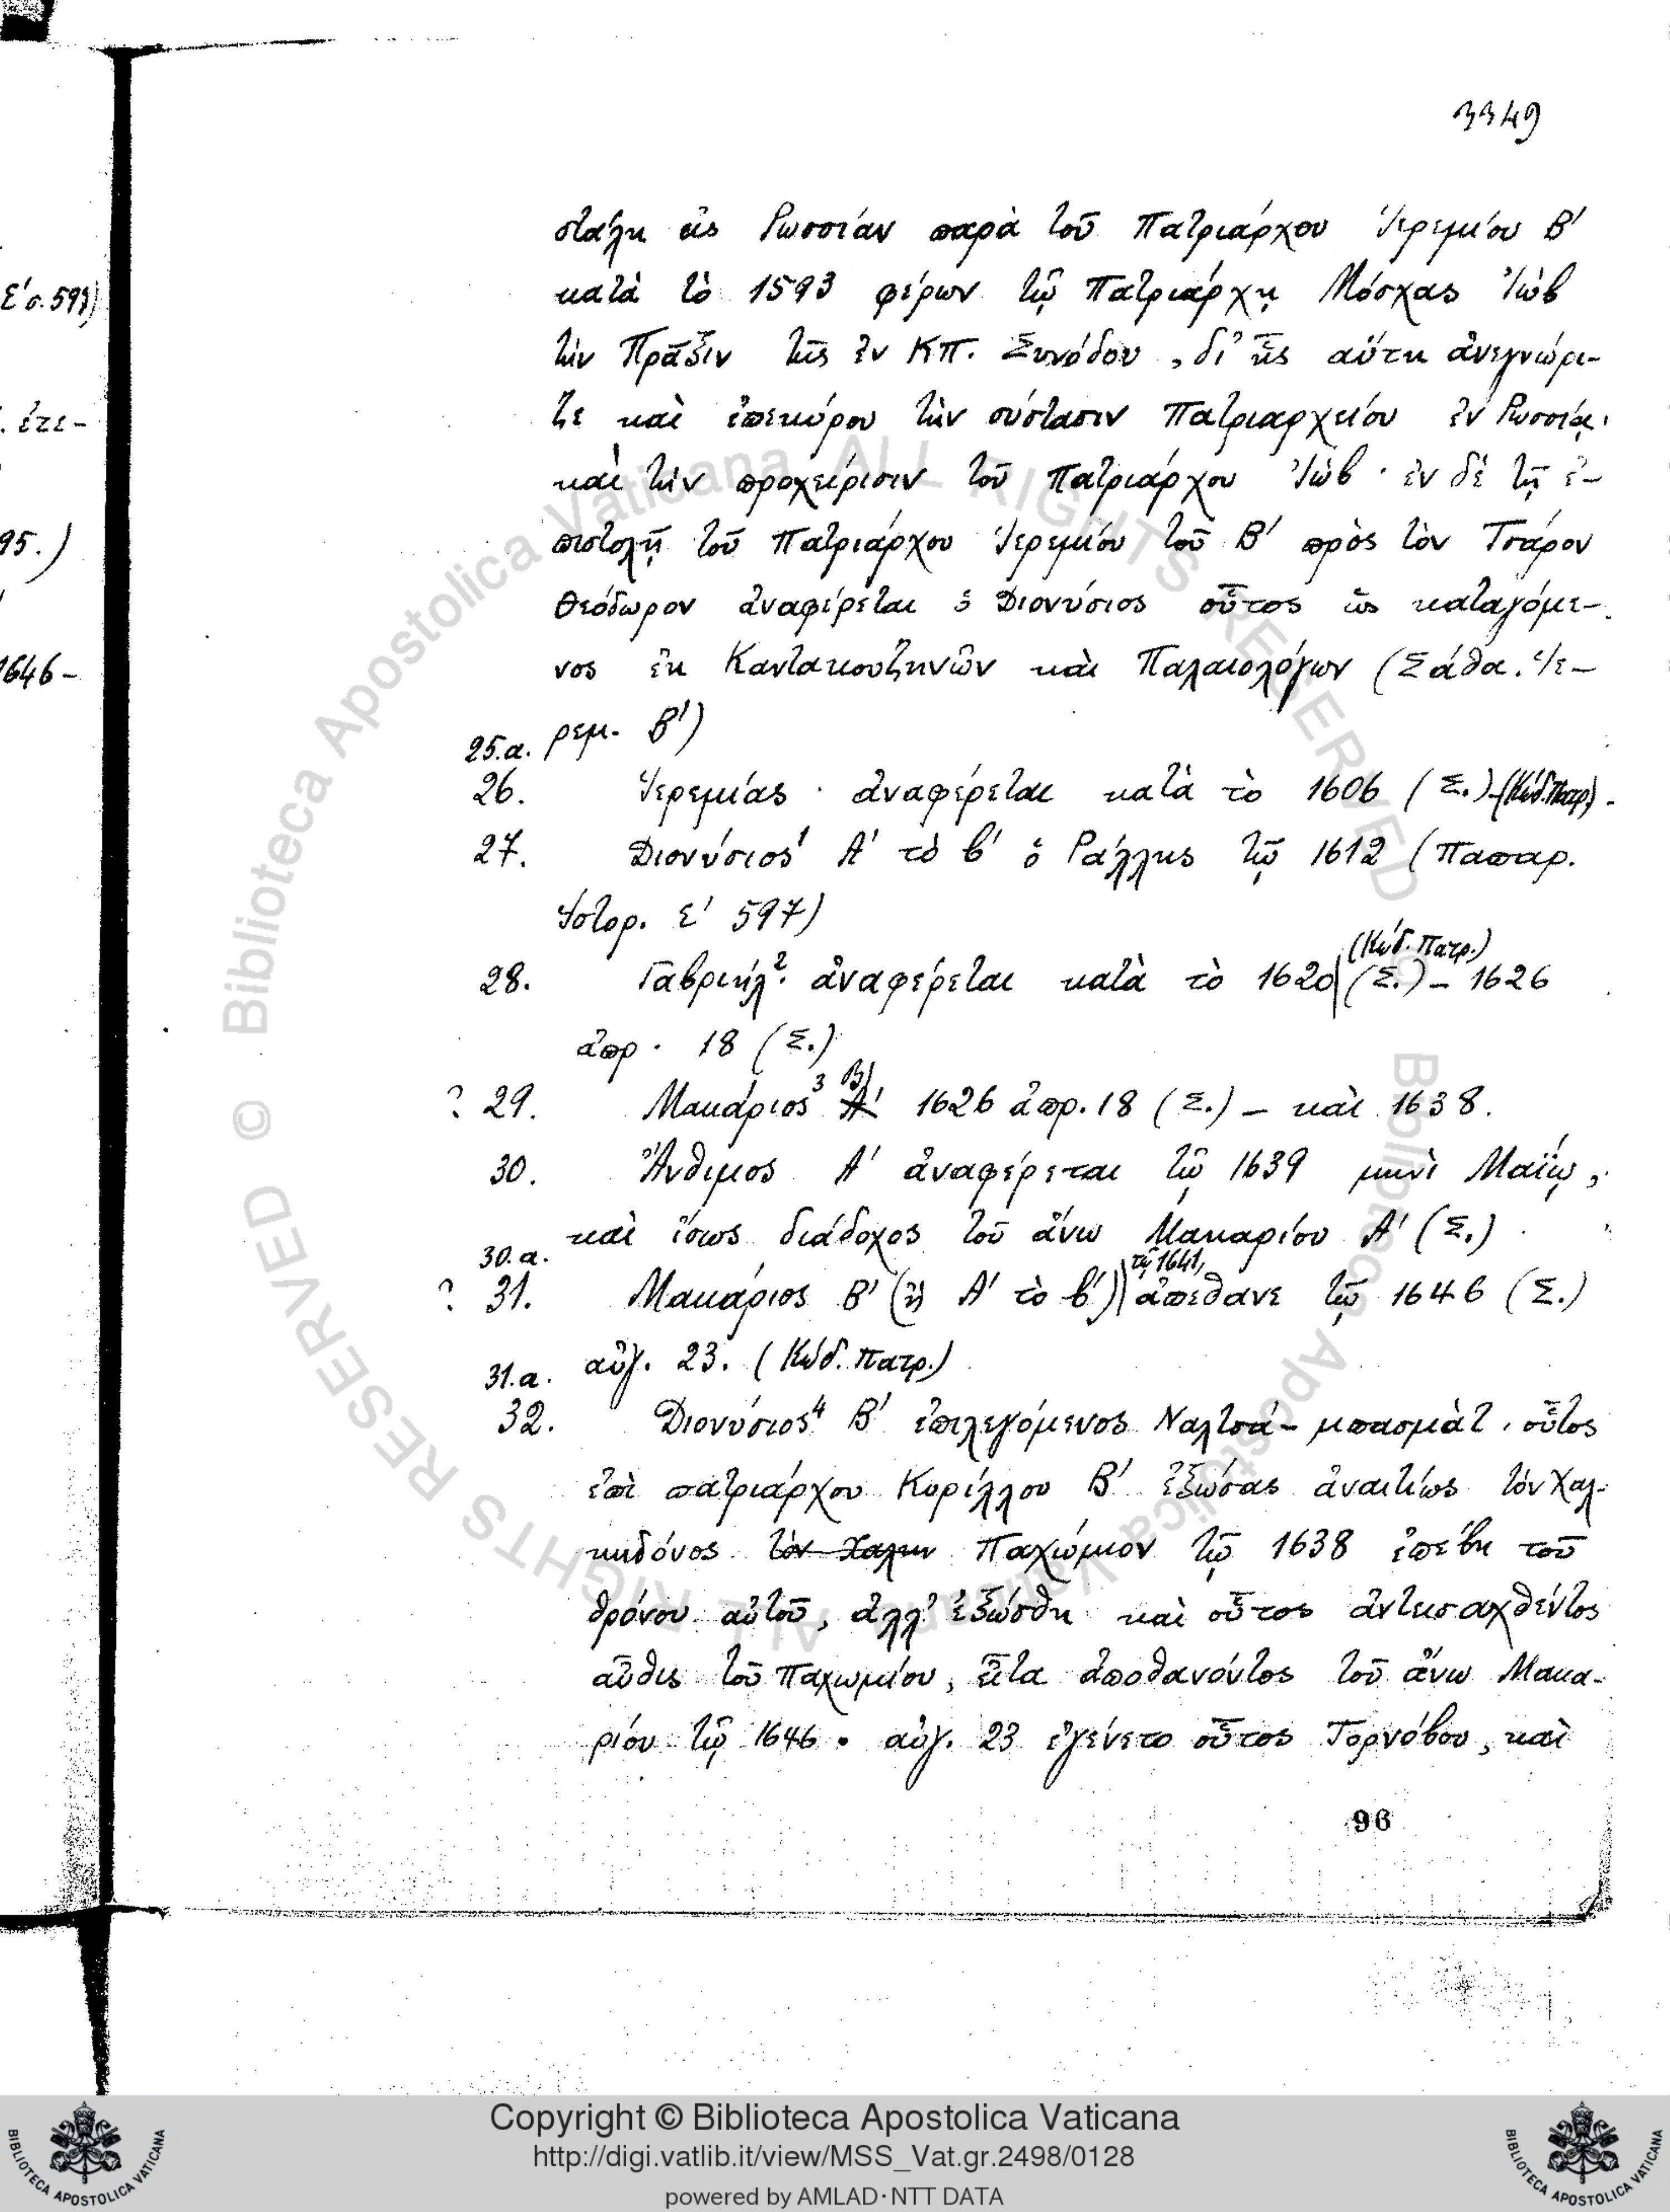 3349
Ε΄σ. 599)
στάλη εἰς Ρωσσίαν παρὰ τοῦ Πατριάρχου Ἱερεμίου Β΄
κατὰ τὸ 1593 φέρων τῷ Πατριάρχῃ Μόσχας Ἰὼβ
τὴν Πρᾶξιν τῆς ἐν Κπ. Συνόδου, δι᾽ ἧς αὕτη ἀνεγνώρι-
. ἐτε-
ζε καὶ ἐπεκύρου τὴν σύστασιν Πατριαρχείου ἐν Ρωσσίᾳ,
καὶ τὴν προχείρισιν τοῦ Πατριάρχου Ἰώβ· ἐν δὲ τῇ ἐ-
95.)
πιστολῇ τοῦ Πατριάρχου Ἱερεμίου τοῦ Β΄ πρὸς τὸν Τσάρον
Θεόδωρον ἀναφέρεται ὁ Διονύσιος οὗτος ὡς καταγόμε-
1646-
νος ἐκ Καντακουζηνῶν καὶ Παλαιολόγων (Σάθα. Ἱε-
25.α. ρεμ. Β΄)
26. Ἱερεμίας · ἀναφέρεται κατὰ τὸ 1606 (Σ.) (Κώδ. Πατρ).
27. Διονύσιος¹ Α΄ τὸ β΄ ὁ Ράλλης τῷ 1612 (Παπαρ.
Ἱστορ. Ε΄ 597)
(Κώδ. Πατρ.)
28. Γαβριήλ². ἀναφέρεται κατὰ τὸ 1620 (Σ.) - 1626
ἀπρ. 18 (Σ.)
? 29. Μακάριος³ Α΄ Β΄ 1626 ἀπρ. 18 (Σ.) - καὶ 1638.
30. Ἄνθιμος Α΄ ἀναφέρεται τῷ 1639 μηνὶ Μαΐῳ,
καὶ ἴσως διάδοχος τοῦ ἄνω Μακαρίου Α΄ (Σ.)
30.α. τῷ 1641,
? 31. Μακάριος Β΄ (ἢ Α΄ τὸ β΄) ἀπέθανε τῷ 1646 (Σ.)
αὐγ. 23. (Κώδ. Πατρ.)
31.α.
32. Διονύσιος⁴ Β΄ ἐπιλεγόμενος Ναλτσά-μπασμὰζ, οὗτος
ἐπὶ πατριάρχου Κυρίλλου Β΄ ἐξώσας ἀναιτίως τὸν Χαλ-
κηδόνος τὸν Χαλκη Παχώμιον τῷ 1638 ἐπέβη τοῦ
θρόνου αὐτοῦ, ἀλλ᾽ ἐξώσθη καὶ οὗτος ἀντεισαχθέντος
αὖθις τοῦ Παχωμίου, εἶτα ἀποθανόντος τοῦ ἄνω Μακα-
ρίου τῷ 1646. αὐγ. 23 ἐγένετο οὗτος Τορνόβου, καὶ
96
© Biblioteca Apostolica Vaticana ALL RIGHTS RESERVED
Copyright © Biblioteca Apostolica Vaticana
http://digi.vatlib.it/view/MSS_Vat.gr.2498/0128
powered by AMLAD·NTT DATA
BIBLIOTECA APOSTOLICA VATICANA
BIBLIOTECA APOSTOLICA VATICANA